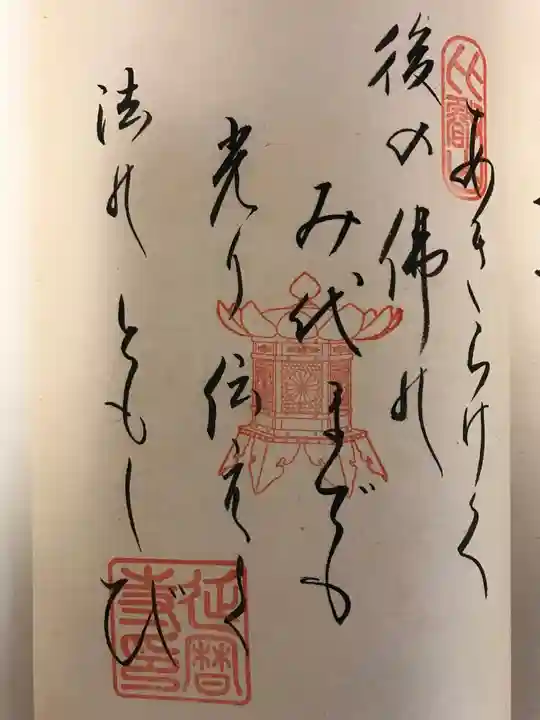 比叡山
あきらけく
後の佛の
み代までも
光り伝へよ
法のともしび
延暦寺印